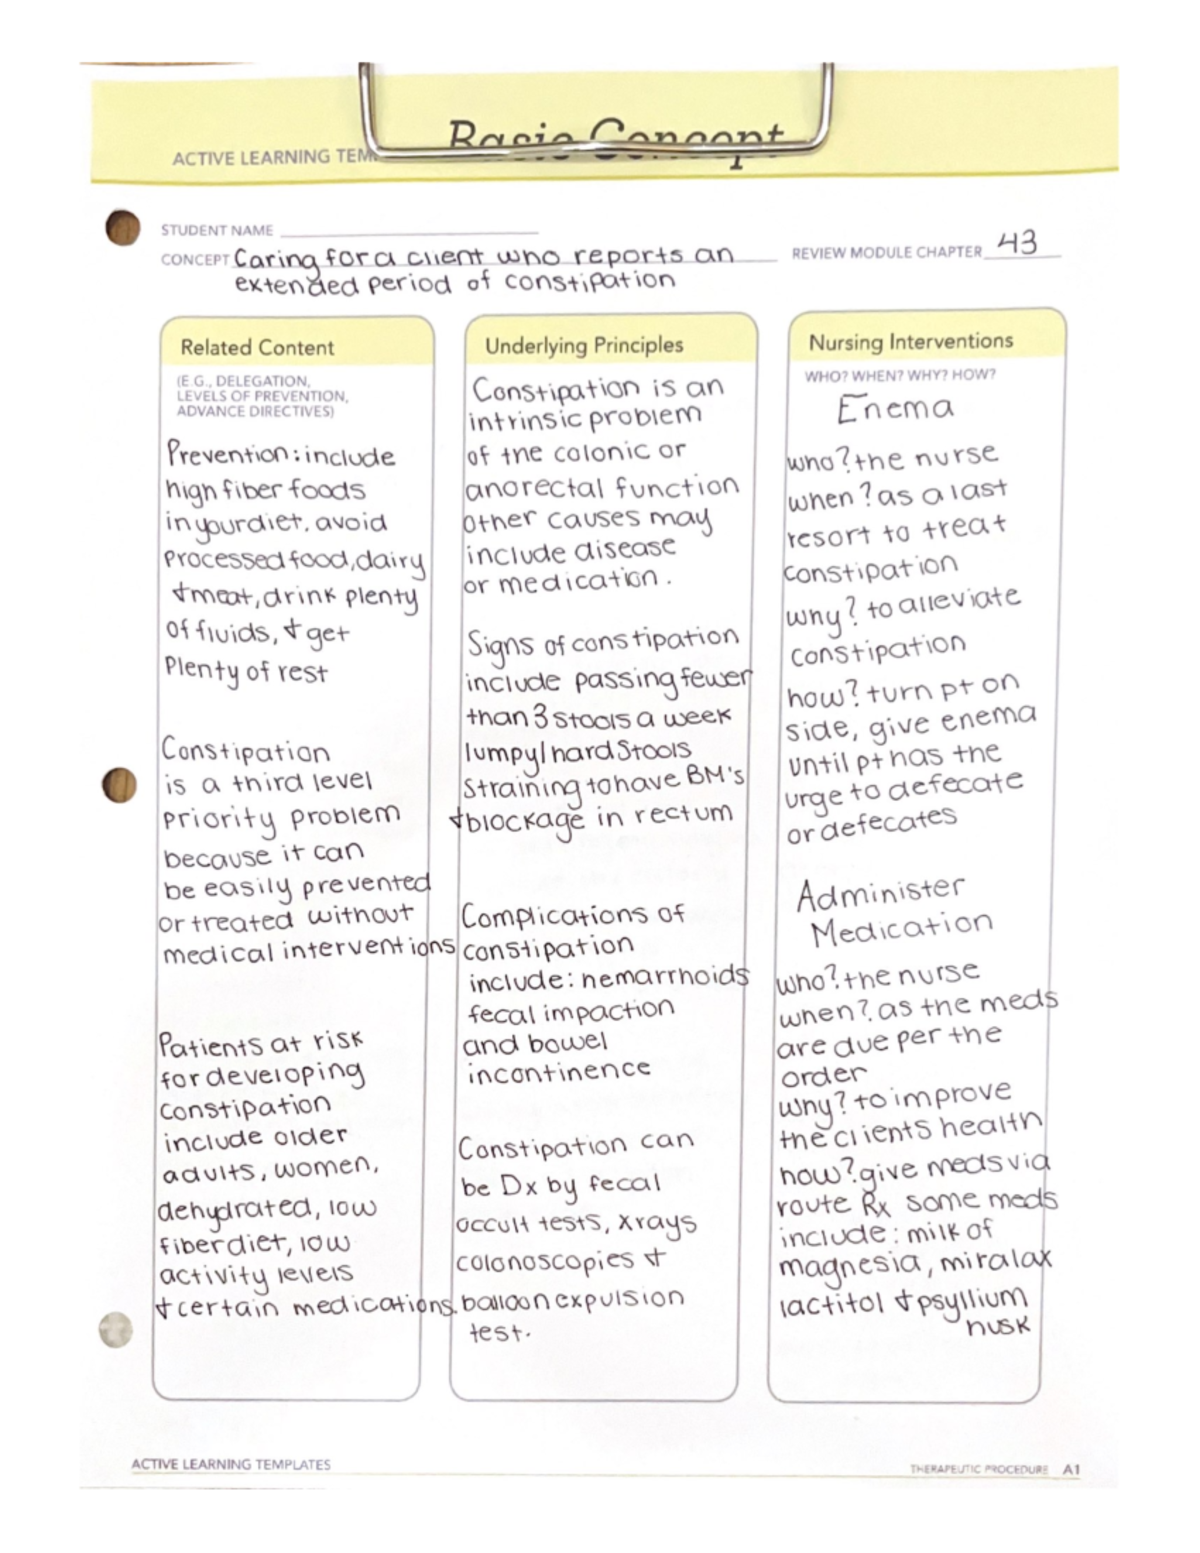 Basic Concept
ACTIVE LEARNING TEM
STUDENT NAME
CONCEPT Caring for a client who reports an
extended period of constipation
REVIEW MODULE CHAPTER 43
Related Content
(E.G., DELEGATION,
LEVELS OF PREVENTION,
ADVANCE DIRECTIVES)
Prevention: include
high fiber foods
in your diet. avoid
processed food, dairy
+ meat, drink plenty
of fluids, + get
Plenty of rest
Constipation
is a third level
priority problem
because it can
be easily prevented
or treated without
medical interventions
Patients at risk
for developing
constipation
include older
adults, women,
dehydrated, low
fiber diet, low
activity levels
+ certain medications.
Underlying Principles
Constipation is an
intrinsic problem
of the colonic or
anorectal function
other causes may
include disease
or medication.
Signs of constipation
include passing fewer
than 3 stools a week
lumpy/hard stools
straining to have BM's
+ blockage in rectum
Complications of
constipation
include: hemarrhoids
fecal impaction
and bowel
incontinence
Constipation can
be Dx by fecal
occult tests, xrays
colonoscopies +
balloon expulsion
test.
Nursing Interventions
WHO? WHEN? WHY? HOW?
Enema
who? the nurse
when? as a last
resort to treat
constipation
why? to alleviate
constipation
how? turn pt on
side, give enema
until pt has the
urge to defecate
or defecates
Administer
Medication
who? the nurse
when? as the meds
are due per the
order
why? to improve
the clients health
how? give meds via
route Rx some meds
include: milk of
magnesia, miralax
lactitol + psyllium
husk
ACTIVE LEARNING TEMPLATES
THERAPEUTIC PROCEDURE A1